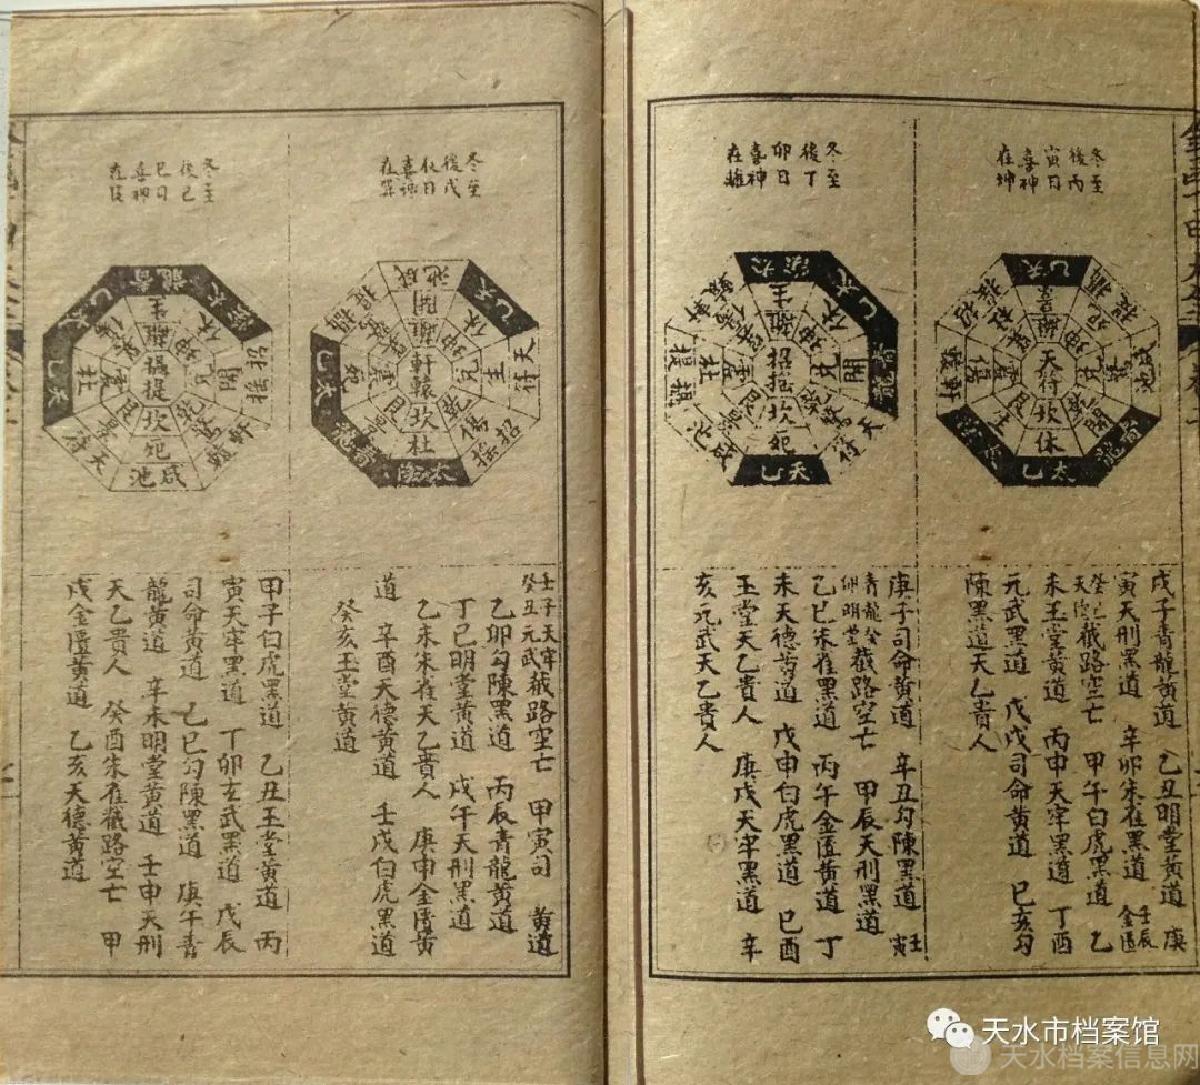 冬至
後丙
寅日
喜神
在坤
太乙
天符
坎
休
太乙
青龍
咸池
戊子青龍黃道　乙丑明堂黃道　庚
寅天刑黑道　辛卯朱雀黑道　壬辰金匱
癸巳天德截路空亡　甲午白虎黑道　乙
未玉堂黃道　丙申天牢黑道　丁酉
元武黑道　戊戌司命黃道　己亥勾
陳黑道天乙貴人
冬至
後丁
卯日
喜神
在離
招搖
坎
死
天乙
青龍
天符
咸池
庚子司命黃道　辛丑勾陳黑道　壬寅
青龍癸卯明堂截路空亡　甲辰天刑黑道
乙巳朱雀黑道　丙午金匱黃道　丁
未天德黃道　戊申白虎黑道　己酉
玉堂天乙貴人　庚戌天牢黑道　辛
亥元武天乙貴人
冬至
後戊
辰日
喜神
在巽
咸池
開
軒轅
坎
杜
太陰
青龍
太乙
天乙
天符
招搖
壬子天牢癸丑元武截路空亡　甲寅司　黃道
乙卯勾陳黑道　丙辰青龍黃道
丁巳明堂黃道　戊午天刑黑道
乙未朱雀天乙貴人　庚申金匱黃
道　辛酉天德黃道　壬戌白虎黑道
癸亥玉堂黃道
冬至
後己
巳日
喜神
在艮
青龍
攝提
坎
死
咸池
天符
軒轅
招搖
甲子白虎黑道　乙丑玉堂黃道　丙
寅天牢黑道　丁卯玄武黑道　戊辰
司命黃道　己巳勾陳黑道　庚午青
龍黃道　辛未明堂黃道　壬申天刑
天乙貴人　癸酉朱雀截路空亡　甲
戌金匱黃道　乙亥天德黃道
天水市档案馆
天水档案信息网